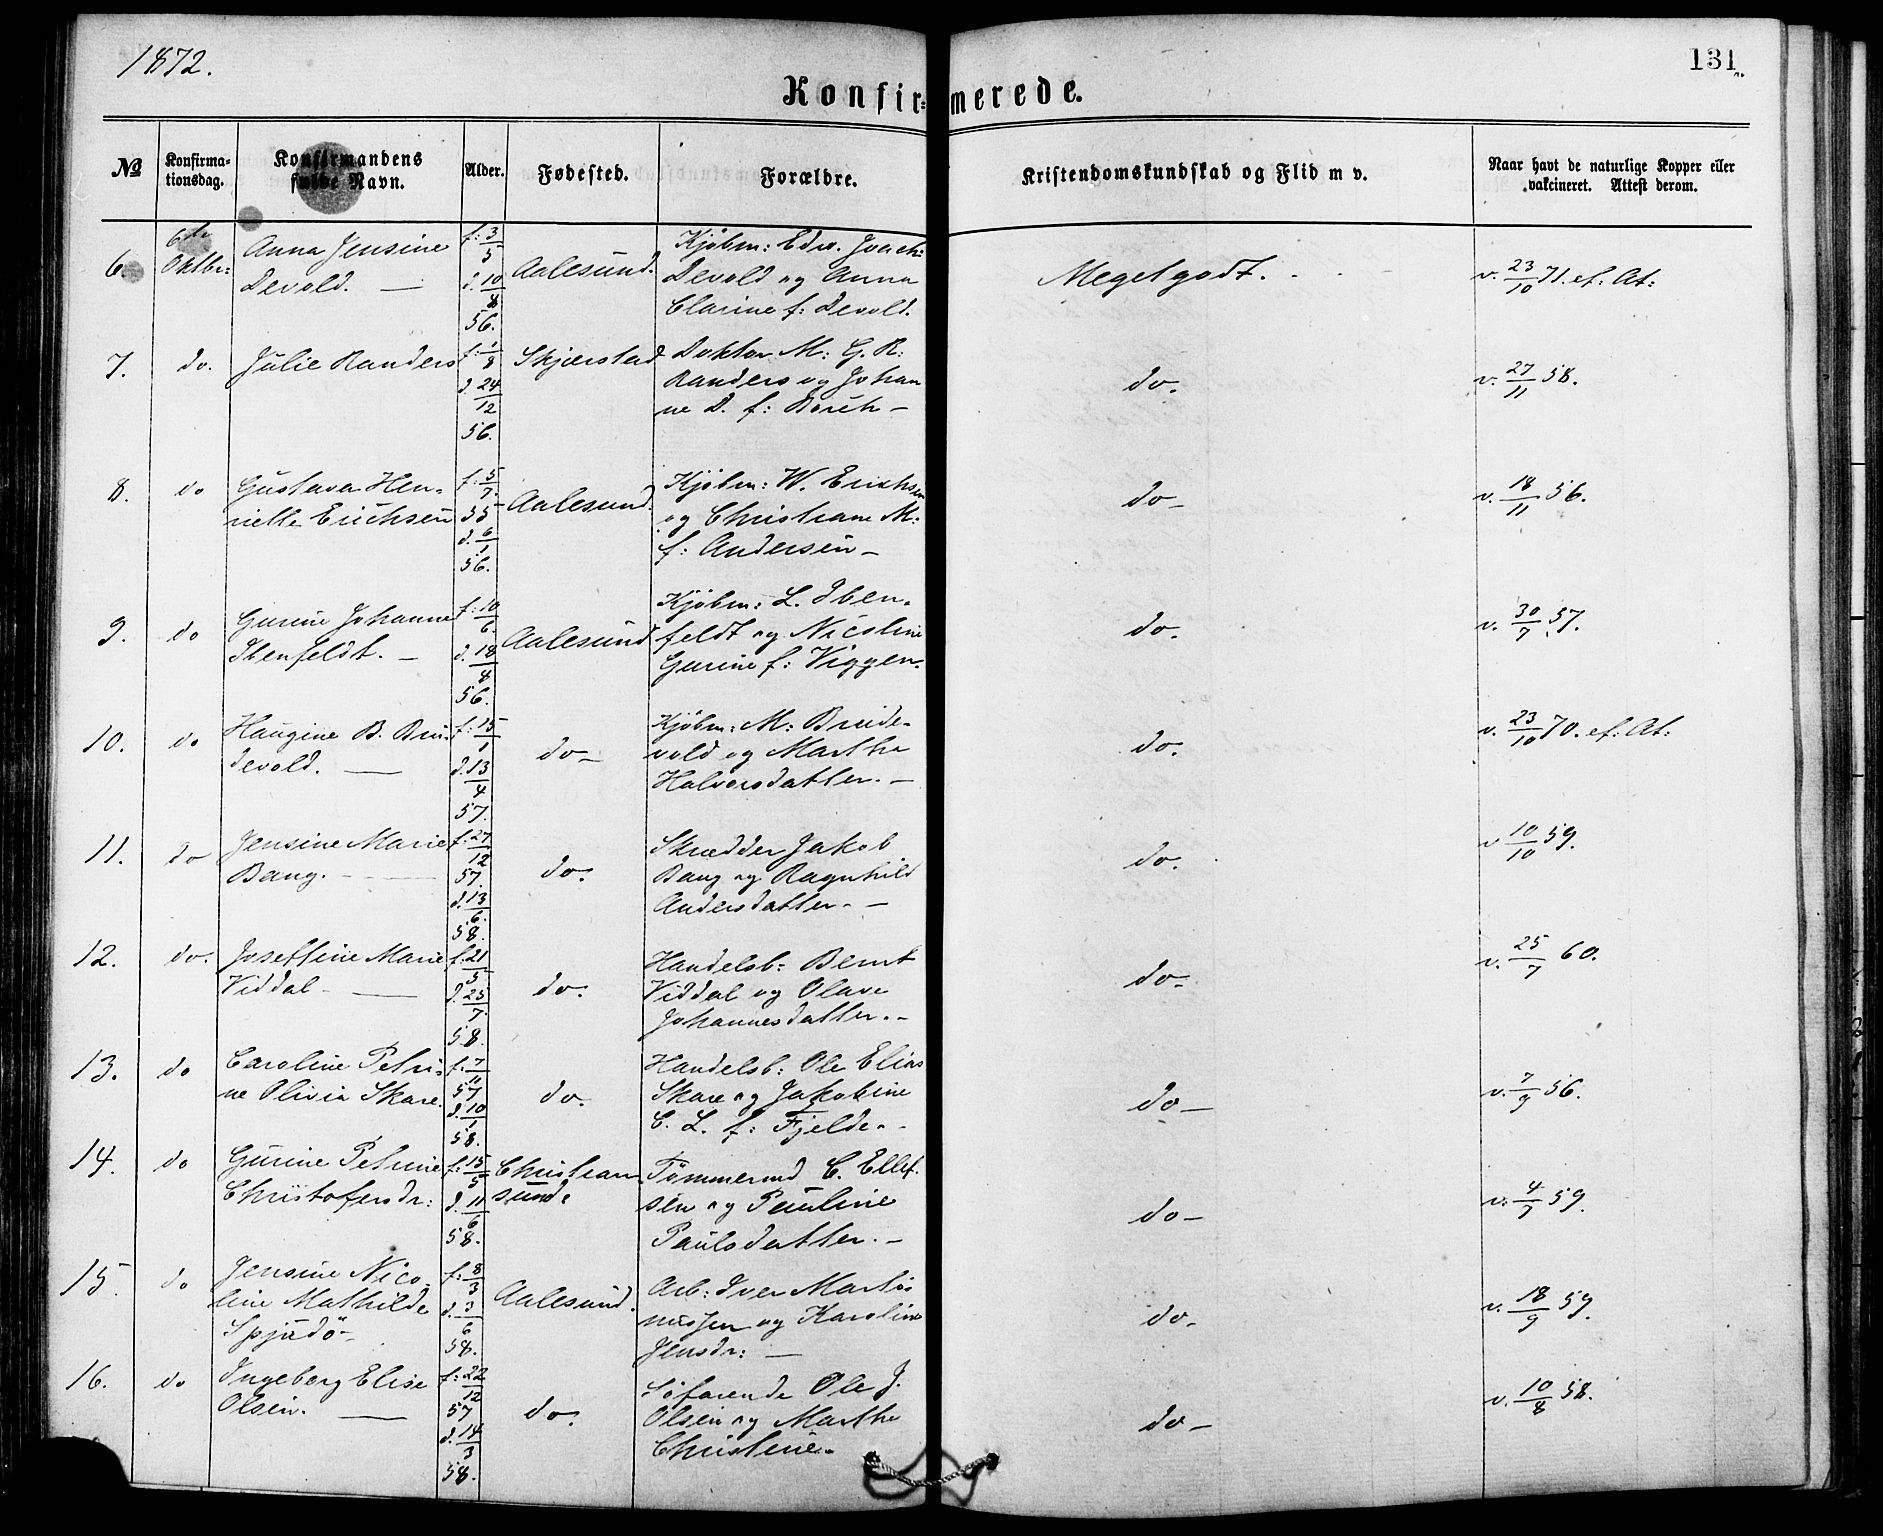 1872.
131
Konfirmerede.
No
Konfirma-
tionsdag.
Konfirmandens
fulde Navn.
Alder.
Fødested.
Forældre.
Kristendomskundskab og Flid m v.
Naar havt de naturlige Kopper eller
vakcineret. Attest derom.
6. 6te Oktbr: Anna Jensine f: 3/5 Aalesund. Kjøbm: Edv. Joach:
Devold. — d. 10/8 56. Devold og Anna
Clarine f: Devold.
Meget godt. v. 23/10 71. ef: At:
7. do. Julie Randers f: 1/8 Skjerstad Doktor M: G. R:
d. 24/12 56. Randers og Johan
ne D. f: —
do. v. 27/11 58.
8. do Gustava Hen- f: 5/7 55 Aalesund. Kjøbm: W. Erichsen
riette Erichsen d. 6/1 56. og Christiane M:
f: Andersen —
do — v. 18/11 56.
9. do Gurine Johanne f: 10/6 Aalesund Kjøbm: L. Iben-
Ibenfeldt. — d. 18/8 56. feldt og Nicoline
Gurine f: Viggen.
do. v. 30/7 57.
10. do Haugine B. Bru- f: 15/1 do — Kjøbm: M: Brude-
devold. — d. 13/4 57. vold og Martha
Halvorsdatter. —
do. v. 23/10 70. ef: At:
11. do Jensine Marie f: 27/12 57 do. Skrædder Jakob
Bang. — d. 13/6 58. Bang og Ragnhild
Andersdatter. —
do. v 10/10 59.
12. do. Joseffine Marie f: 21/5 do. Handelsb: Bernt
Viddal — d. 25/7 58. Viddal og Olave
Johannesdatter. —
do — v. 25/7 60.
13. do Caroline Petri- f: 7/11 57 do. Handelsb: Ole Elias
ne Olivia Skare. d. 10/1 58. Skare og Jakobine
C. L. f: Fjelde. —
do — v. 7/9 56.
14. do Gurine Petrine f: 15/5 Christian Tømmermd C. Ellef-
Christofersdr: d. 11/6 58. sund. sen og Pauline
Paulsdatter. —
do — v: 4/7 59.
15. do Jensine Nico- f: 8/3 Aalesund. Arb: Iver Marti-
line Mathilde d. 3/6 58. nussen og Karoline
Spjudø — Jensdr: —
do — v. 18/9 59.
16. do Ingeborg Elise f: 22/12 57 do. Søfarende Ole J.
Olsen. — d. 14/3 58. Olsen og Marthe
Christine.
do — v. 10/8 58.